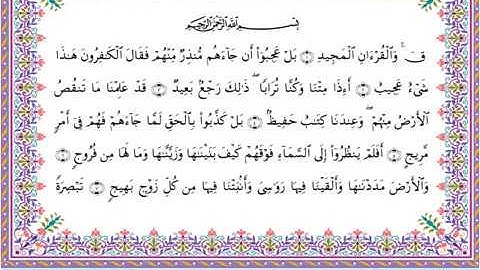 بِسْمِ اللَّهِ الرَّحْمَٰنِ الرَّحِيمِ
قٓ ۚ وَالْقُرْءَانِ الْمَجِيدِ ۝ بَلْ عَجِبُوٓا۟ أَن جَآءَهُم مُّنذِرٌ مِّنْهُمْ فَقَالَ الْكَٰفِرُونَ هَٰذَا
شَىْءٌ عَجِيبٌ ۝ أَءِذَا مِتْنَا وَكُنَّا تُرَابًا ۖ ذَٰلِكَ رَجْعٌۢ بَعِيدٌ ۝ قَدْ عَلِمْنَا مَا تَنقُصُ
الْأَرْضُ مِنْهُمْ ۖ وَعِندَنَا كِتَٰبٌ حَفِيظٌۢ ۝ بَلْ كَذَّبُوا۟ بِالْحَقِّ لَمَّا جَآءَهُمْ فَهُمْ فِىٓ أَمْرٍ
مَّرِيجٍ ۝ أَفَلَمْ يَنظُرُوٓا۟ إِلَى السَّمَآءِ فَوْقَهُمْ كَيْفَ بَنَيْنَٰهَا وَزَيَّنَّٰهَا وَمَا لَهَا مِن فُرُوجٍ ۝
وَالْأَرْضَ مَدَدْنَٰهَا وَأَلْقَيْنَا فِيهَا رَوَٰسِىَ وَأَنۢبَتْنَا فِيهَا مِن كُلِّ زَوْجٍۭ بَهِيجٍ ۝ تَبْصِرَةً